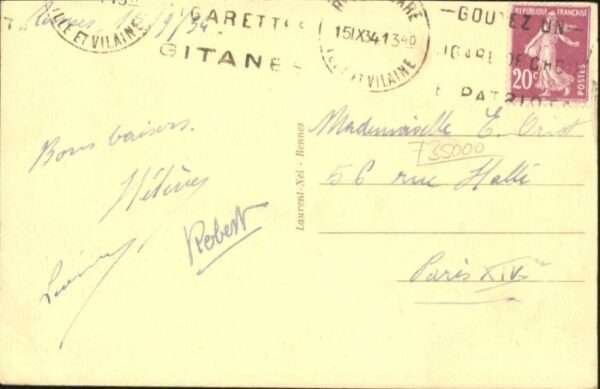 Rennes 15/9/34
ILLE ET VILAINE
GARETTES
GITANES
RENNES GARE
15IX34 13 40
ILLE ET VILAINE
—GOUTEZ UN—
REPUBLIQUE FRANÇAISE
20c
POSTES
Bons baisers.
Hélène
Robert
Laurent-Nel - Rennes
Mademoiselle E.
735000
56 rue Hallé
Paris XIVe